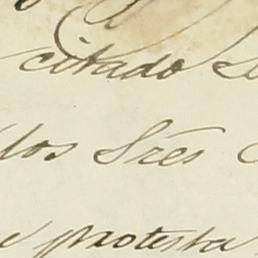 citado
los Sres
protesta